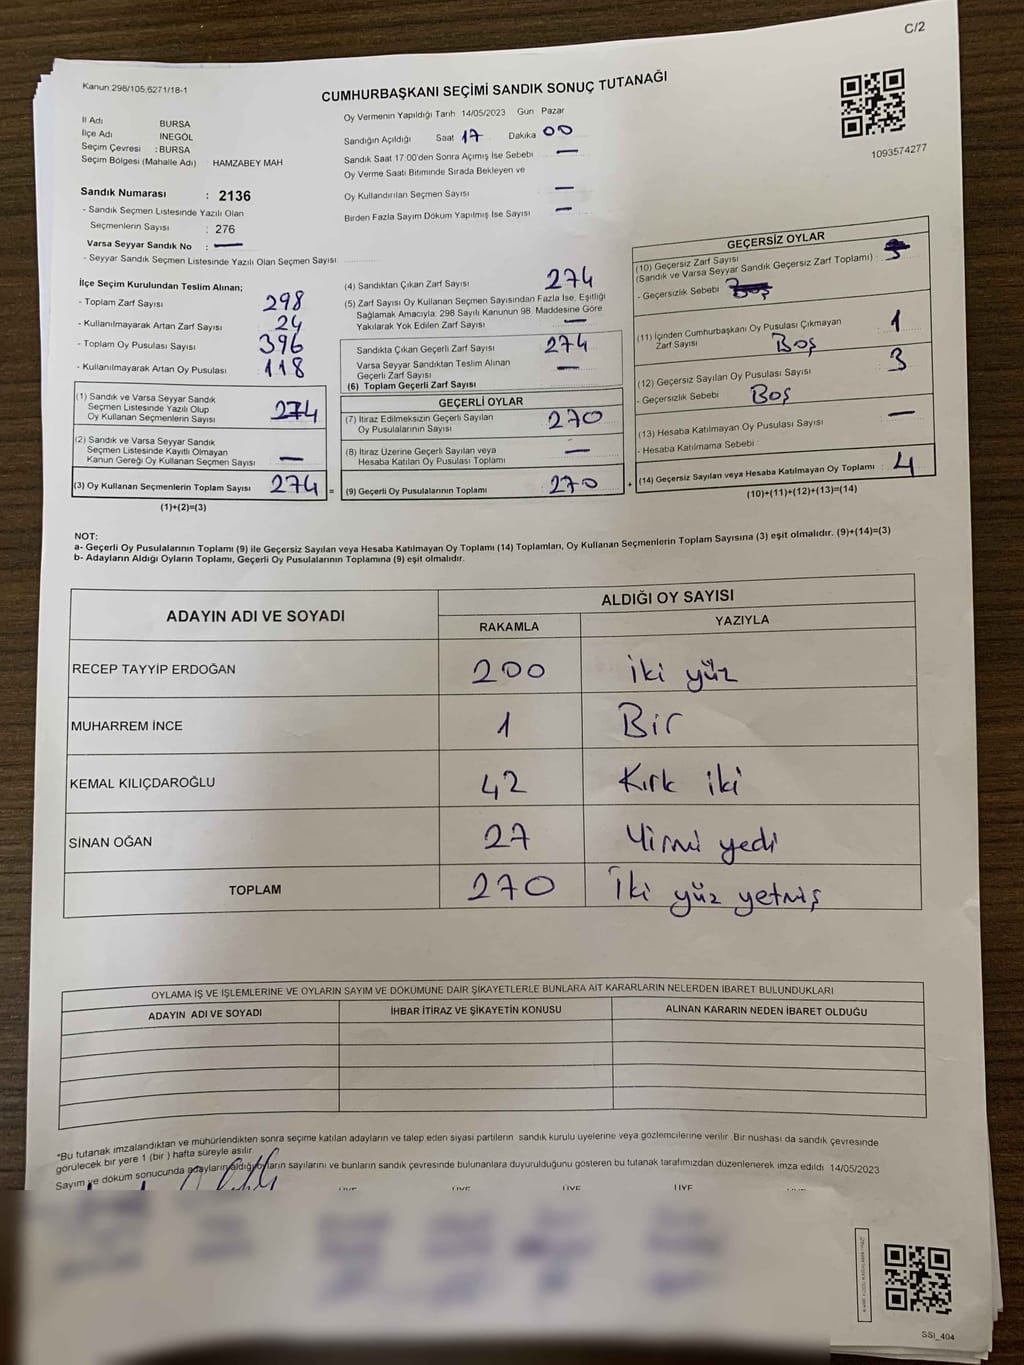 C/2
Kanun 298/105,6271/18-1
CUMHURBAŞKANI SEÇİMİ SANDIK SONUÇ TUTANAĞI
1093574277
İl Adı BURSA
İlçe Adı INEGÖL
Seçim Çevresi : BURSA
Seçim Bölgesi (Mahalle Adı) HAMZABEY MAH
Sandık Numarası : 2136
- Sandık Seçmen Listesinde Yazılı Olan
Seçmenlerin Sayısı : 276
Varsa Seyyar Sandık No : —
- Seyyar Sandık Seçmen Listesinde Yazılı Olan Seçmen Sayısı
Oy Vermenin Yapıldığı Tarih 14/05/2023 Gün Pazar
Sandığın Açıldığı Saat 17 Dakika 00
Sandık Saat 17:00'den Sonra Açımış İse Sebebi —
Oy Verme Saati Bitiminde Sırada Bekleyen ve
Oy Kullandırılan Seçmen Sayısı —
Birden Fazla Sayım Döküm Yapılmış İse Sayısı —
İlçe Seçim Kurulundan Teslim Alınan;
- Toplam Zarf Sayısı 298
- Kullanılmayarak Artan Zarf Sayısı 24
- Toplam Oy Pusulası Sayısı 396
- Kullanılmayarak Artan Oy Pusulası 118
(1) Sandık ve Varsa Seyyar Sandık
Seçmen Listesinde Yazılı Olup
Oy Kullanan Seçmenlerin Sayısı 274
(2) Sandık ve Varsa Seyyar Sandık
Seçmen Listesinde Kayıtlı Olmayan
Kanun Gereği Oy Kullanan Seçmen Sayısı —
(3) Oy Kullanan Seçmenlerin Toplam Sayısı 274 =
(1)+(2)=(3)
(4) Sandıktan Çıkan Zarf Sayısı 274
(5) Zarf Sayısı Oy Kullanan Seçmen Sayısından Fazla İse, Eşitliği
Sağlamak Amacıyla, 298 Sayılı Kanunun 98. Maddesine Göre
Yakılarak Yok Edilen Zarf Sayısı —
Sandıkta Çıkan Geçerli Zarf Sayısı 274
Varsa Seyyar Sandıktan Teslim Alınan
Geçerli Zarf Sayısı —
(6) Toplam Geçerli Zarf Sayısı
GEÇERLİ OYLAR
(7) İtiraz Edilmeksizin Geçerli Sayılan
Oy Pusulalarının Sayısı 270
(8) İtiraz Üzerine Geçerli Sayılan veya
Hesaba Katılan Oy Pusulası Toplamı —
(9) Geçerli Oy Pusulalarının Toplamı 270 +
GEÇERSİZ OYLAR
(10) Geçersiz Zarf Sayısı
(Sandık ve Varsa Seyyar Sandık Geçersiz Zarf Toplamı) :
- Geçersizlik Sebebi Boş
(11) İçinden Cumhurbaşkanı Oy Pusulası Çıkmayan
Zarf Sayısı Boş 1
(12) Geçersiz Sayılan Oy Pusulası Sayısı 3
- Geçersizlik Sebebi Boş
(13) Hesaba Katılmayan Oy Pusulası Sayısı —
- Hesaba Katılmama Sebebi :
(14) Geçersiz Sayılan veya Hesaba Katılmayan Oy Toplamı : 4
(10)+(11)+(12)+(13)=(14)
NOT:
a- Geçerli Oy Pusulalarının Toplamı (9) ile Geçersiz Sayılan veya Hesaba Katılmayan Oy Toplamı (14) Toplamları, Oy Kullanan Seçmenlerin Toplam Sayısına (3) eşit olmalıdır. (9)+(14)=(3)
b- Adayların Aldığı Oyların Toplamı, Geçerli Oy Pusulalarının Toplamına (9) eşit olmalıdır.
ADAYIN ADI VE SOYADI ALDIĞI OY SAYISI
RAKAMLA YAZIYLA
RECEP TAYYİP ERDOĞAN 200 İki yüz
MUHARREM İNCE 1 Bir
KEMAL KILIÇDAROĞLU 42 Kırk iki
SİNAN OĞAN 27 Yirmi yedi
TOPLAM 270 İki yüz yetmiş
OYLAMA İŞ VE İŞLEMLERİNE VE OYLARIN SAYIM VE DÖKÜMÜNE DAİR ŞİKAYETLERLE BUNLARA AİT KARARLARIN NELERDEN İBARET BULUNDUKLARI
ADAYIN ADI VE SOYADI İHBAR İTİRAZ VE ŞİKAYETİN KONUSU ALINAN KARARIN NEDEN İBARET OLDUĞU
*Bu tutanak imzalandıktan ve mühürlendikten sonra seçime katılan adayların ve talep eden siyasi partilerin sandık kurulu üyelerine veya gözlemcilerine verilir. Bir nüshası da sandık çevresinde
görülecek bir yere 1 (bir) hafta süreyle asılır.
Sayım ve döküm sonucunda adayların aldığı oyların sayılarını ve bunların sandık çevresinde bulunanlara duyurulduğunu gösteren bu tutanak tarafımızdan düzenlenerek imza edildi 14/05/2023
SSI_404